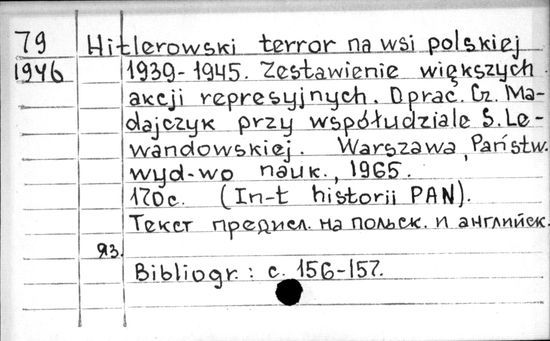 79 Hitlerowski terror na wsi polskiej
1946 1939-1945. Zestawienie większych
akcji represyjnych. Oprac. Cz. Ma-
dajczyk przy współudziale S. Le-
wandowskiej. Warszawa, Państw.
wyd-wo nauk., 1965.
170 с. (In-t historii PAN).
Текст предисл. на польск. и английск.
яз.
Bibliogr.: с. 156-157.